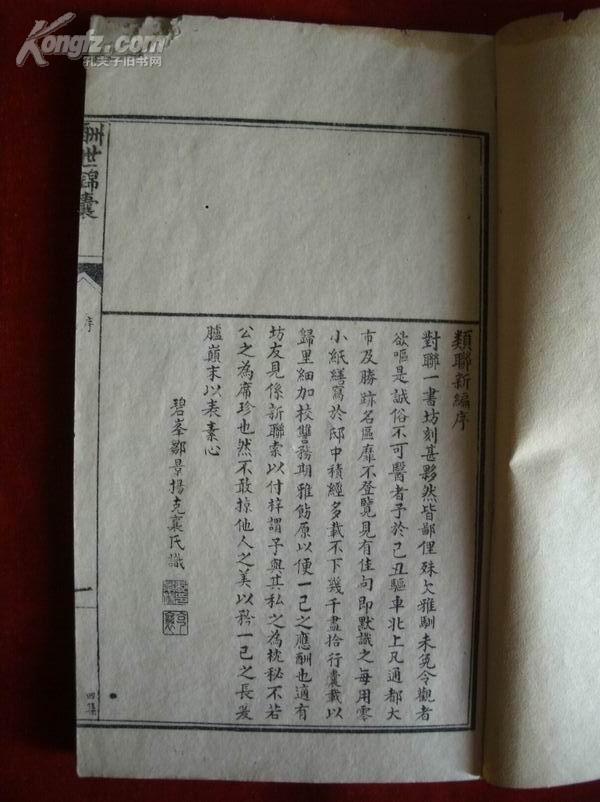 Kongfz.com
孔夫子旧书网
類聯新編序
對聯一書坊刻甚夥然皆鄙俚殊欠雅馴未免令觀者
欲嘔是誠俗不可醫者予於己丑驅車北上凡通都大
市及勝跡名區靡不登覽見有佳句即默識之每用零
小紙繕寫於邸中積經多載不下幾千盡拾行囊載以
歸里細加校讐務期雅飭原以便一己之應酬也適有
坊友見係新聯索以付梓謂予與其私之為枕秘不若
公之為席珍也然不敢掠他人之美以矜一己之長爰
臚巔末以表素心
碧峯鄒景揚克襄氏識
酬世錦囊
序
一
四集